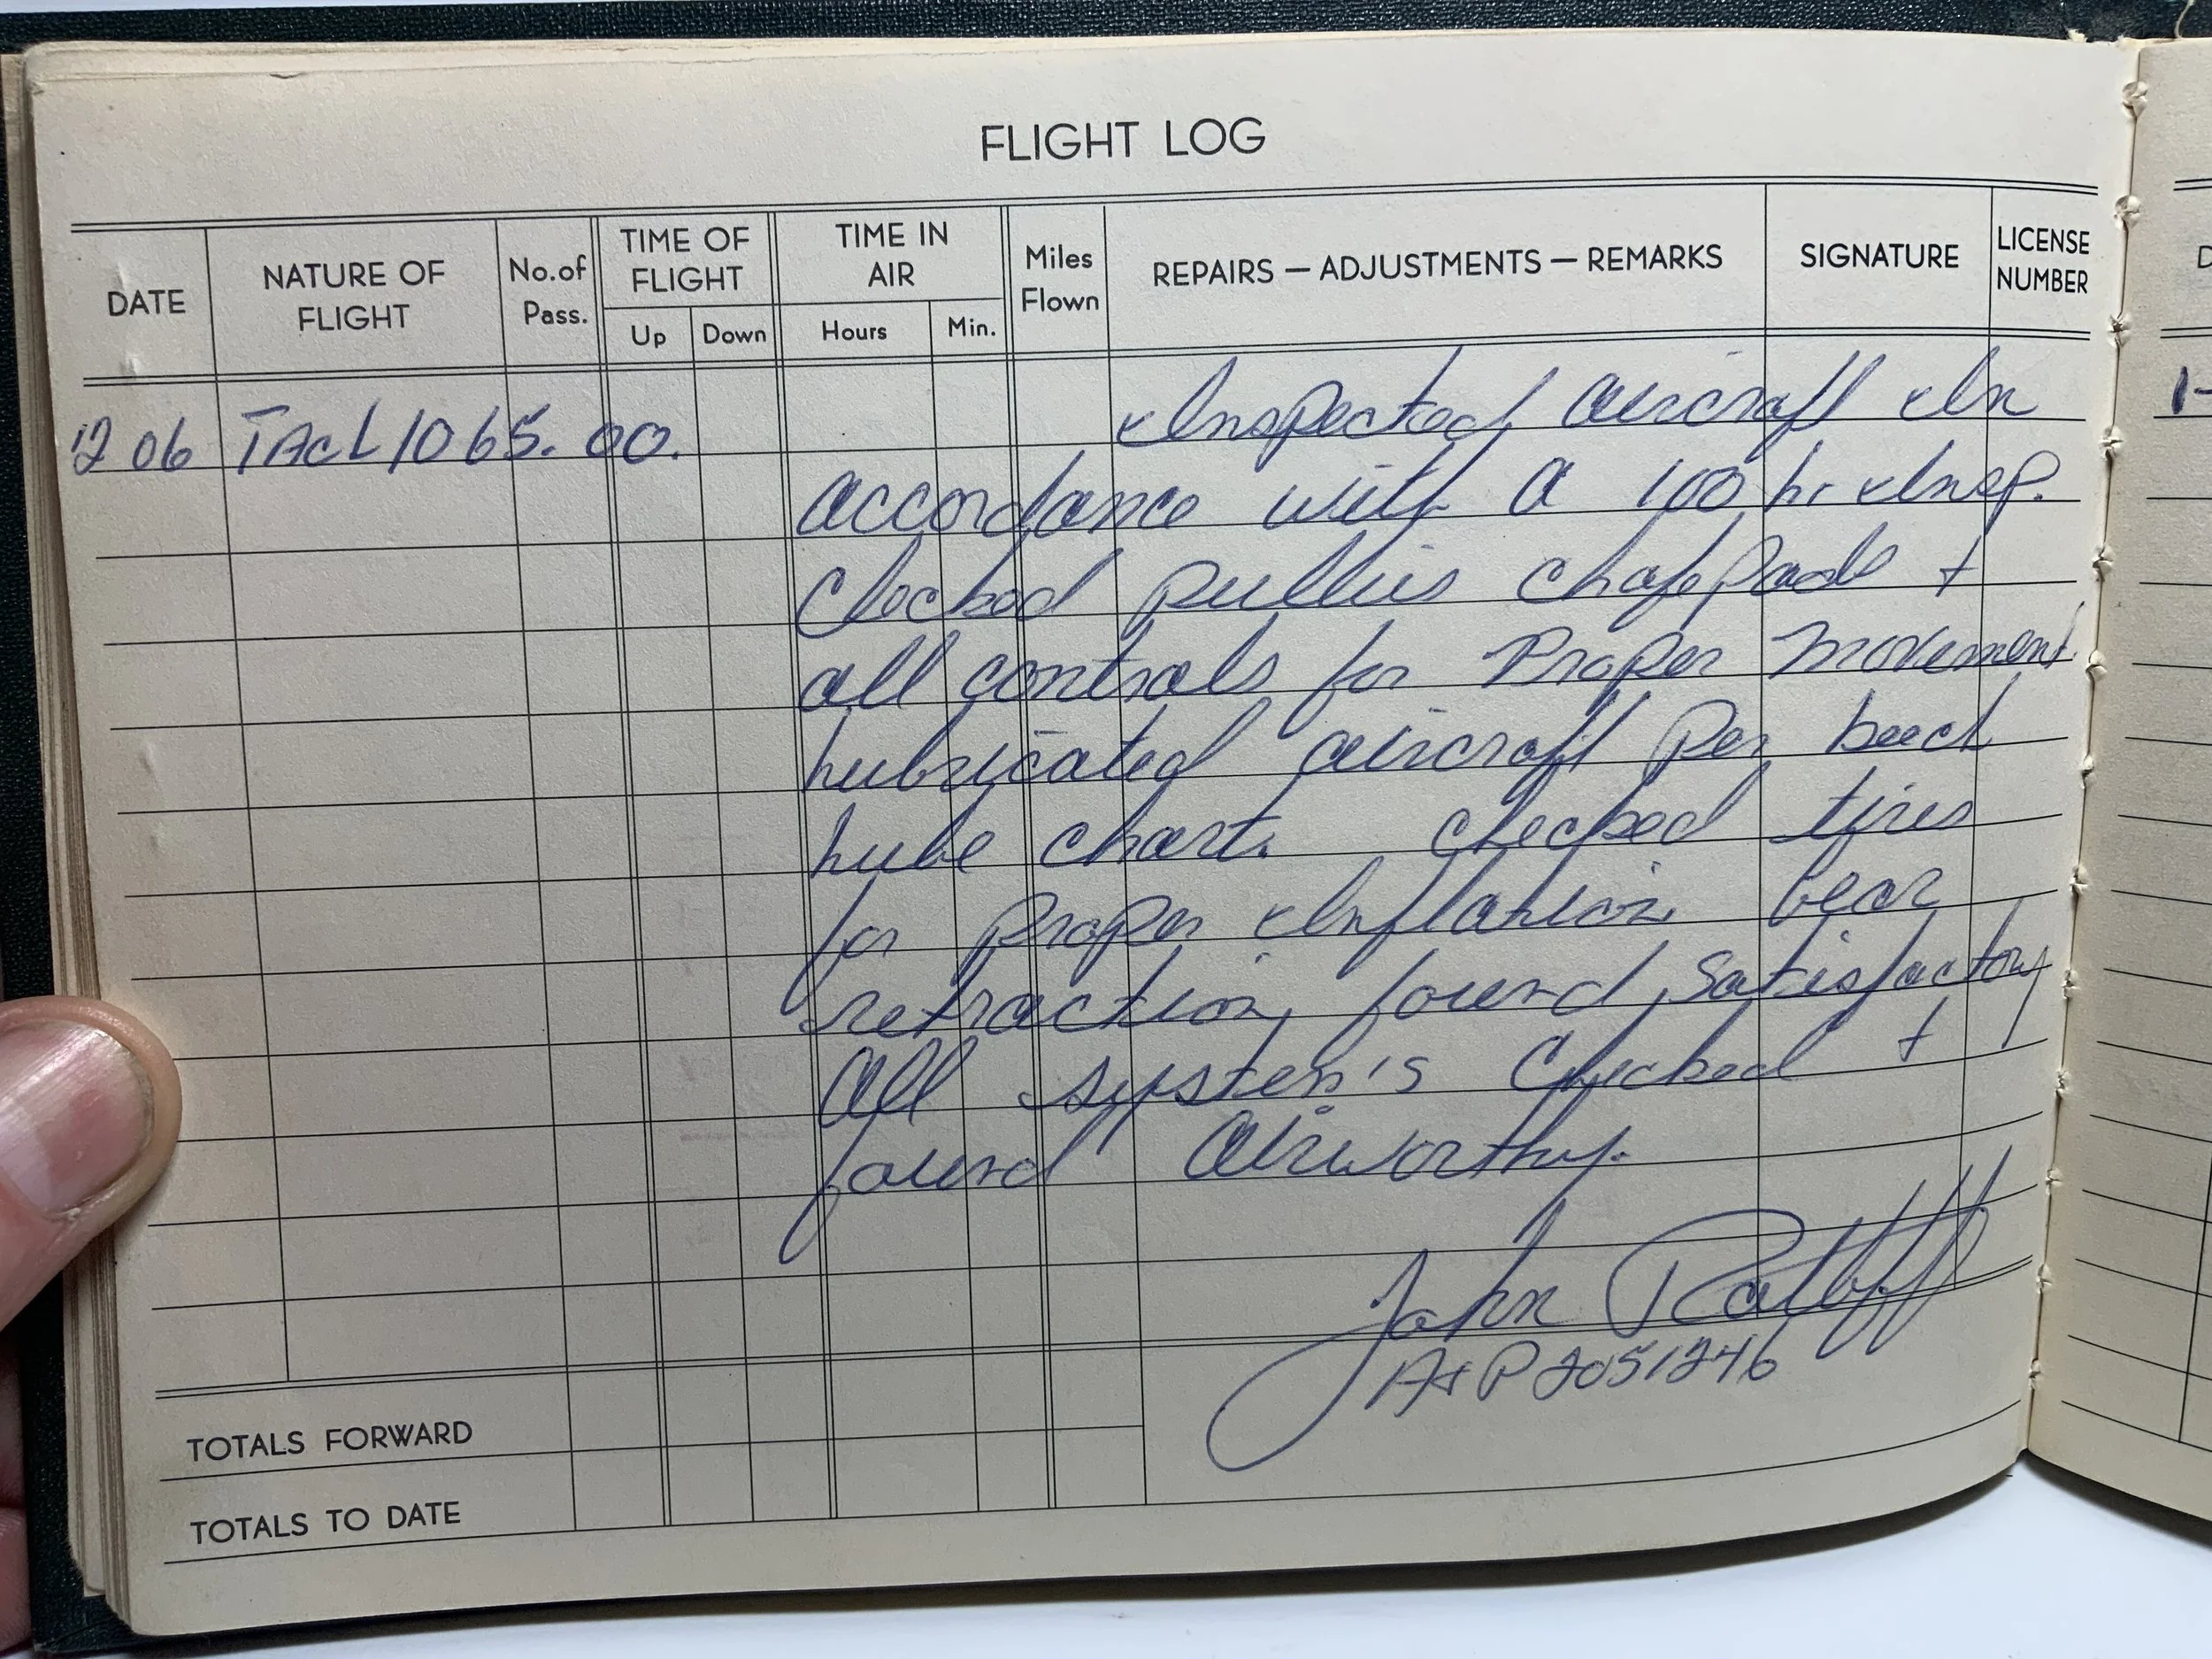 FLIGHT LOG
DATE NATURE OF FLIGHT No. of Pass. TIME OF FLIGHT Up Down TIME IN AIR Hours Min. Miles Flown REPAIRS — ADJUSTMENTS — REMARKS SIGNATURE LICENSE NUMBER
12 06 TAcL 1065.00. Inspected aircraft In
accordance with a 100 hr Insp.
Checked pullies chafe pads +
all controls for Proper Movement.
Lubricated aircraft Per beech
Lube chart. checked tires
for Proper Inflation Gear
retraction found satisfactory
all system's Checked +
found airworthy.
John Ratliff
A+P 2051246
TOTALS FORWARD
TOTALS TO DATE
D
1-